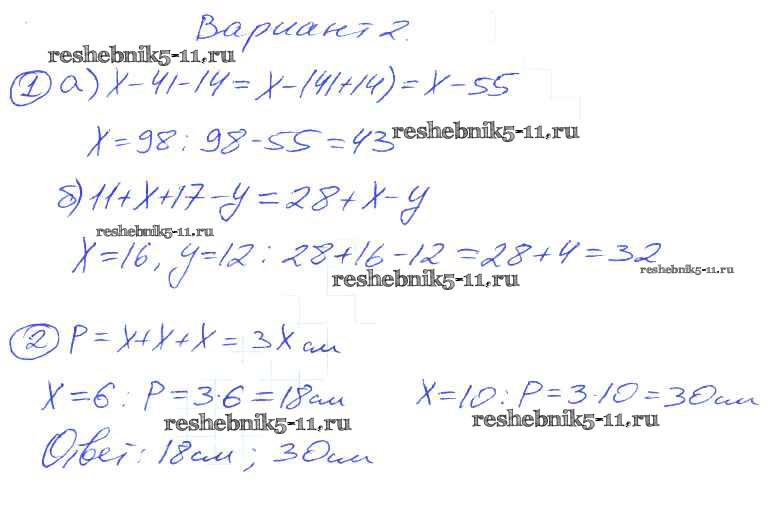 Вариант 2.
reshebnik5-11.ru
① а) x-41-14 = x-(41+14) = x-55
x=98: 98-55=43 reshebnik5-11.ru
б) 11+x+17-y=28+x-y
reshebnik5-11.ru
x=16, y=12: 28+16-12=28+4=32
reshebnik5-11.ru reshebnik5-11.ru
② P=x+x+x=3x см
x=6: P=3·6=18см x=10: P=3·10=30см
reshebnik5-11.ru reshebnik5-11.ru
Ответ: 18см; 30см